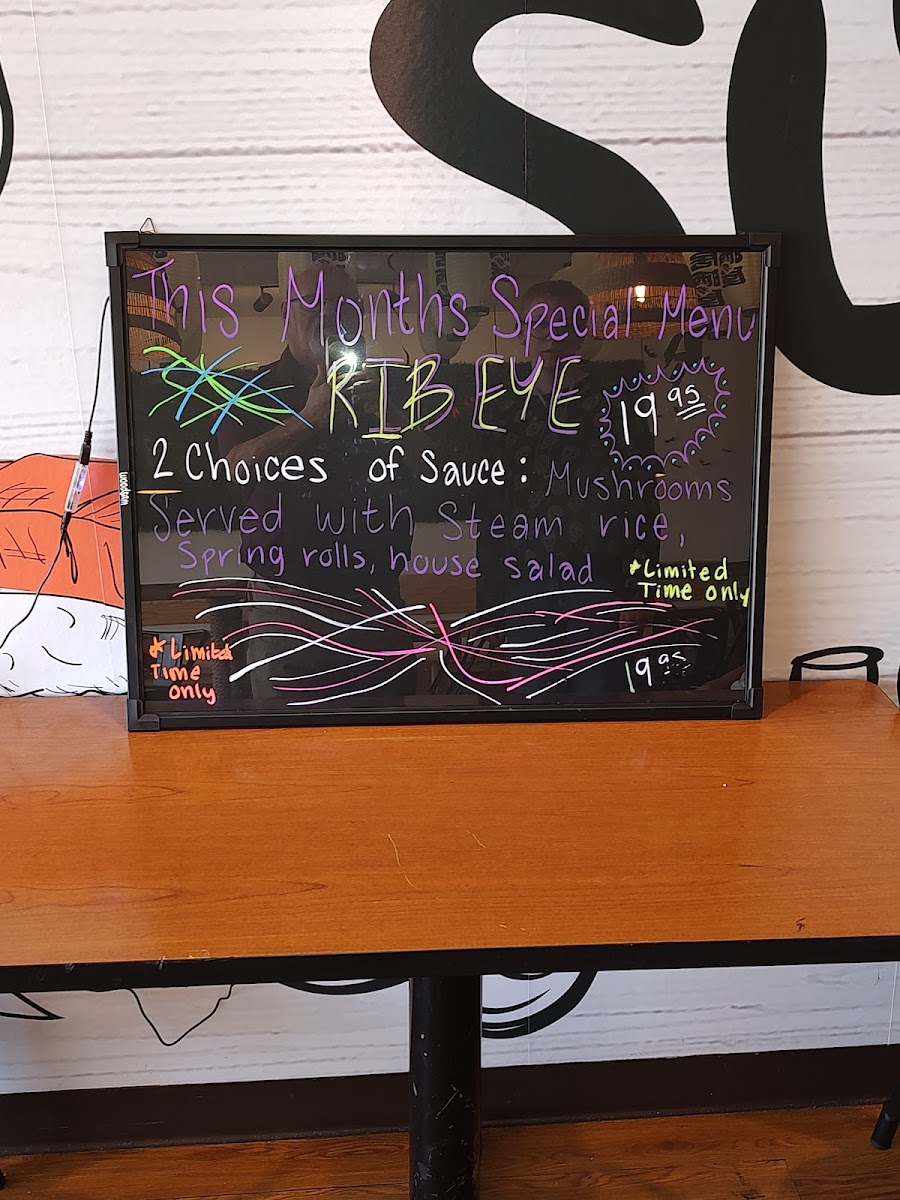 This Months Special Menu
RIB EYE
19 95
2 Choices of Sauce: Mushrooms
Served with Steam rice,
Spring rolls, house salad
*Limited
Time only
*Limited
Time
only
19 95
SU
woodsin